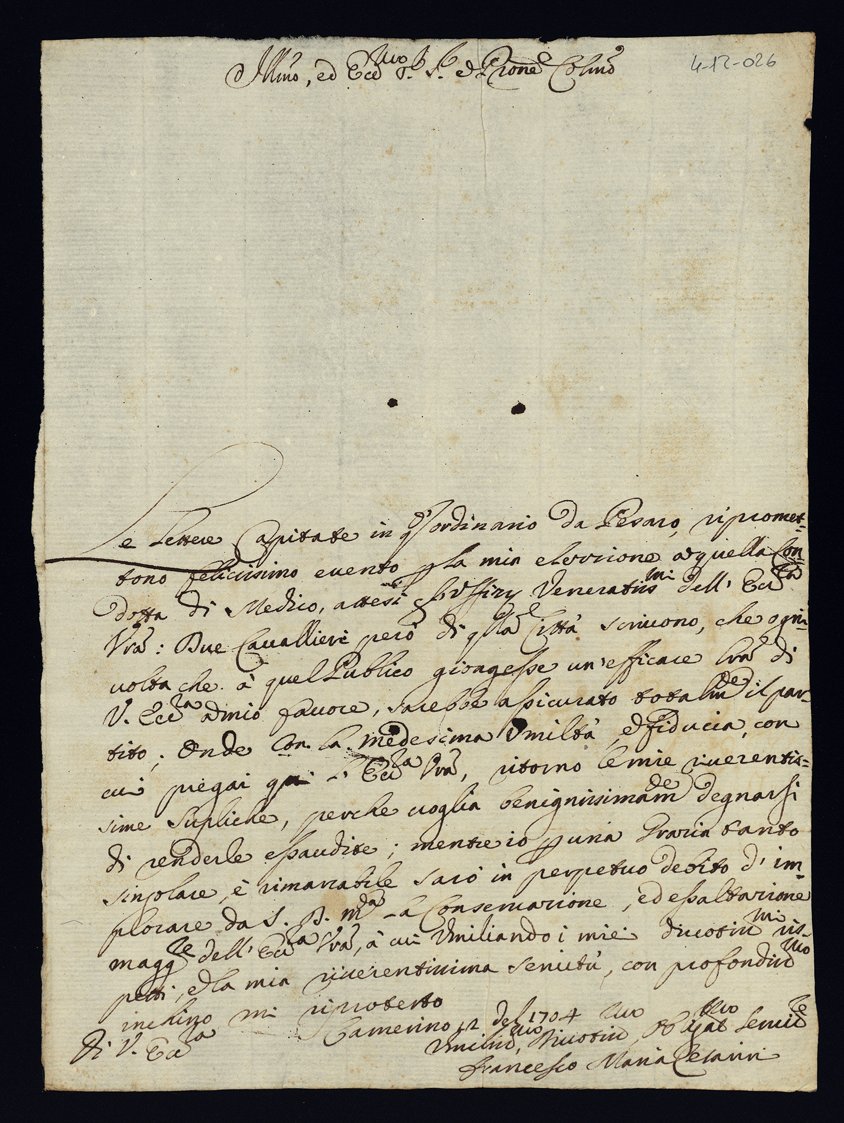 Illmo, ed Eccmo S. S. e Prone Colmo
4-12-026
Le lettere Capitate in qsto ordinario da Pesaro, ripromet-
tono felicissimo evento p la mia elezzione a quella Con
dotta di Medico, attesi gli Vffizy Veneratismi dell' Ecca
Vra: Due Cavallieri però di qlla Città scrivono, che ogni
volta che à quel Publico giongesse un'efficace lra di
V. Ecca a mio favore, sarebbe assicurato totalmde il par-
tito; Onde con la medesima Vmiltà, e fiducia, con
cui pregai Ecca Vra, ritorno le mie riverentis=
sime supliche, perche voglia benignissimamde degnarsi
di renderle essaudite; mentre io p una Grazia tanto
singolare, è rimarcabile sarò in perpetuo debito d' im-
plorare da S. D. Mda la Conservazione, ed essaltazione
maggre dell' Ecca Vra, à cui Vmiliando i miei divotismi ris-
petti, e la mia riverentissima servitù, con profondismo
inchino mi riprotesto
Di V. Ecca
Camerino 12 del 1704
Vmilmo, Divotismo, Obligatmo Servitre
Francesco Maria Cesarini